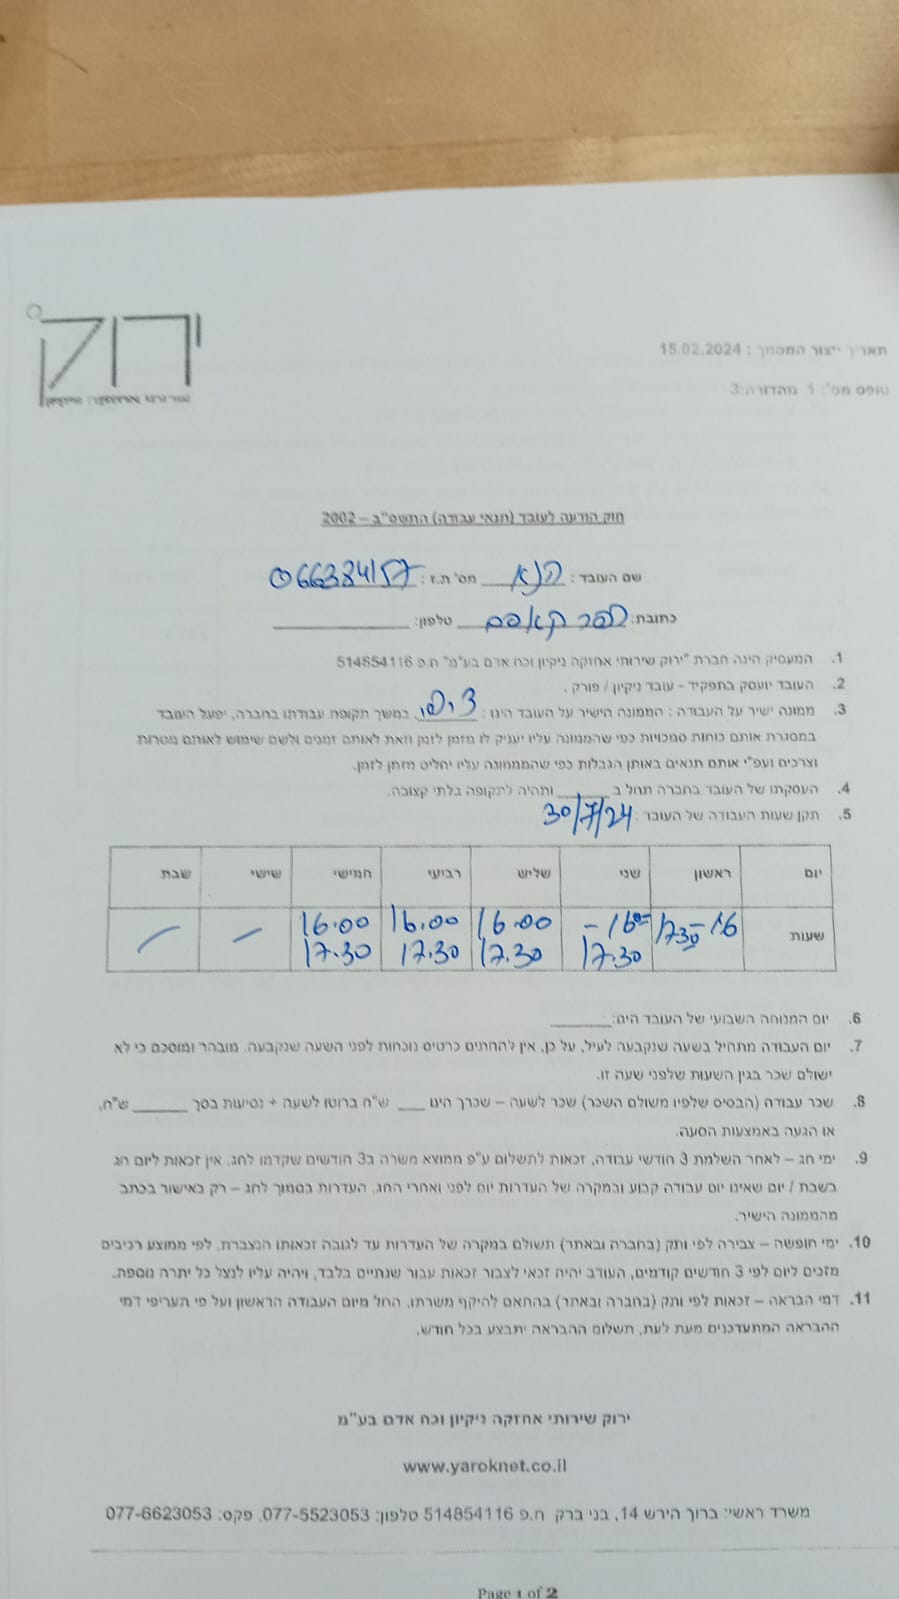 ירוק
תאריך ייצור המסמך : 15.02.2024
טופס מס': 1 מהדורה: 3
חוק הודעה לעובד (תנאי עבודה) התשס"ב – 2002
שם העובד : הנא מס' ת.ז : 066384157
כתובת: כפר קאסם טלפון:
1. המעסיק הינה חברת "ירוק שירותי אחזקה ניקיון וכח אדם בע"מ" ח.פ 514854116
2. העובד יועסק בתפקיד - עובד ניקיון / פורק .
3. ממונה ישיר על העבודה : הממונה הישיר על העובד הינו : ציפי במשך תקופת עבודתו בחברה, יפעל העובד
במסגרת אותם כוחות סמכויות כפי שהממונה עליו יעניק לו מזמן לזמן וזאת לאותם זמנים ולשם שימוש לאותם מטרות
וצרכים ועפ"י אותם תנאים באותן הגבלות כפי שהמממונה עליו יחליט מזמן לזמן.
4. העסקתו של העובד בחברה תחל ב ותהיה לתקופה בלתי קצובה.
30/7/24
5. תקן שעות העבודה של העובד :
יום ראשון שני שליש רביעי חמישי שישי שבת
שעות 16 – 17.30 16.00 – 16.00 16.00 16.00 – –
17.30 17.30 17.30 17.30
6. יום המנוחה השבועי של העובד הינו:
7. יום העבודה מתחיל בשעה שנקבעה לעיל, על כן, אין להחתים כרטיס נוכחות לפני השעה שנקבעה. מובהר ומוסכם כי לא
ישולם שכר בגין השעות שלפני שעה זו.
8. שכר עבודה (הבסיס שלפיו משולם השכר) שכר לשעה – שכרך הינו ש"ח ברוטו לשעה + נסיעות בסך ש"ח,
או הגעה באמצעות הסעה.
9. ימי חג – לאחר השלמת 3 חודשי עבודה, זכאות לתשלום ע"פ ממוצא משרה ב3 חודשים שקדמו לחג. אין זכאות ליום חג
בשבת / יום שאינו יום עבודה קבוע ובמקרה של העדרות יום לפני ואחרי החג, העדרות בסמוך לחג – רק באישור בכתב
מהממונה הישיר.
10. ימי חופשה – צבירה לפי ותק (בחברה ובאתר) תשולם במקרה של העדרות עד לגובה זכאותו הנצברת. לפי ממוצע רכיבים
מזכים ליום לפי 3 חודשים קודמים, העודב יהיה זכאי לצבור זכאות עבור שנתיים בלבד, ויהיה עליו לנצל כל יתרה נוספת.
11. דמי הבראה – זכאות לפי ותק (בחברה ובאתר) בהתאם להיקף משרתו, החל מיום העבודה הראשון ועל פי תעריפי דמי
ההבראה המתעדכנים מעת לעת, תשלום ההבראה יתבצע בכל חודש.
ירוק שירותי אחזקה ניקיון וכח אדם בע"מ
www.yaroknet.co.il
משרד ראשי: ברוך הירש 14, בני ברק ח.פ 514854116 טלפון: 077-5523053, פקס: 077-6623053
Page 1 of 2